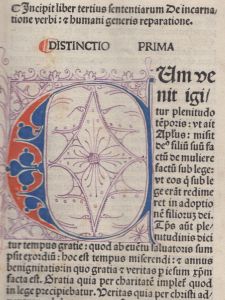 Incipit liber tertius sententiarum De incarna-
tione verbi: et humani generis reparatione.
DISTINCTIO PRIMA
CUm ve
nit igi⸗
tur plenitudo
tēporis: vt ait
Aplus: misit
deꝰ filiū suū fa
ctū de muliere
factū sub lege:
vt eos q̄ sub le
ge erāt redime
ret in adoptio
nē filioꝝ dei.
Tp̄s aūt ple
nitudinis dici
tur tempus gratie: quod ab euētu saluatoris sum
psit exordiū: hoc est tempus miserendi: et annus
benignitatis: in quo gratia et veritas p iesum xp̄m
facta est. Gratia quia per charitatē implef quod
in lege precipiebatur. Veritas quia per christi ad⸗